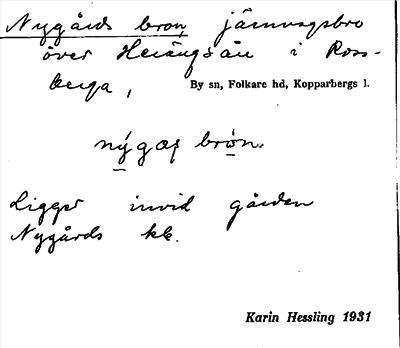 Nygårds bron, järnvägsbro
över Herängsån i Ross-
berga,
By sn, Folkare hd, Kopparbergs l.
nýgaṣ brón.
Ligger invid gården
Nygårds
Karin Hessling 1931